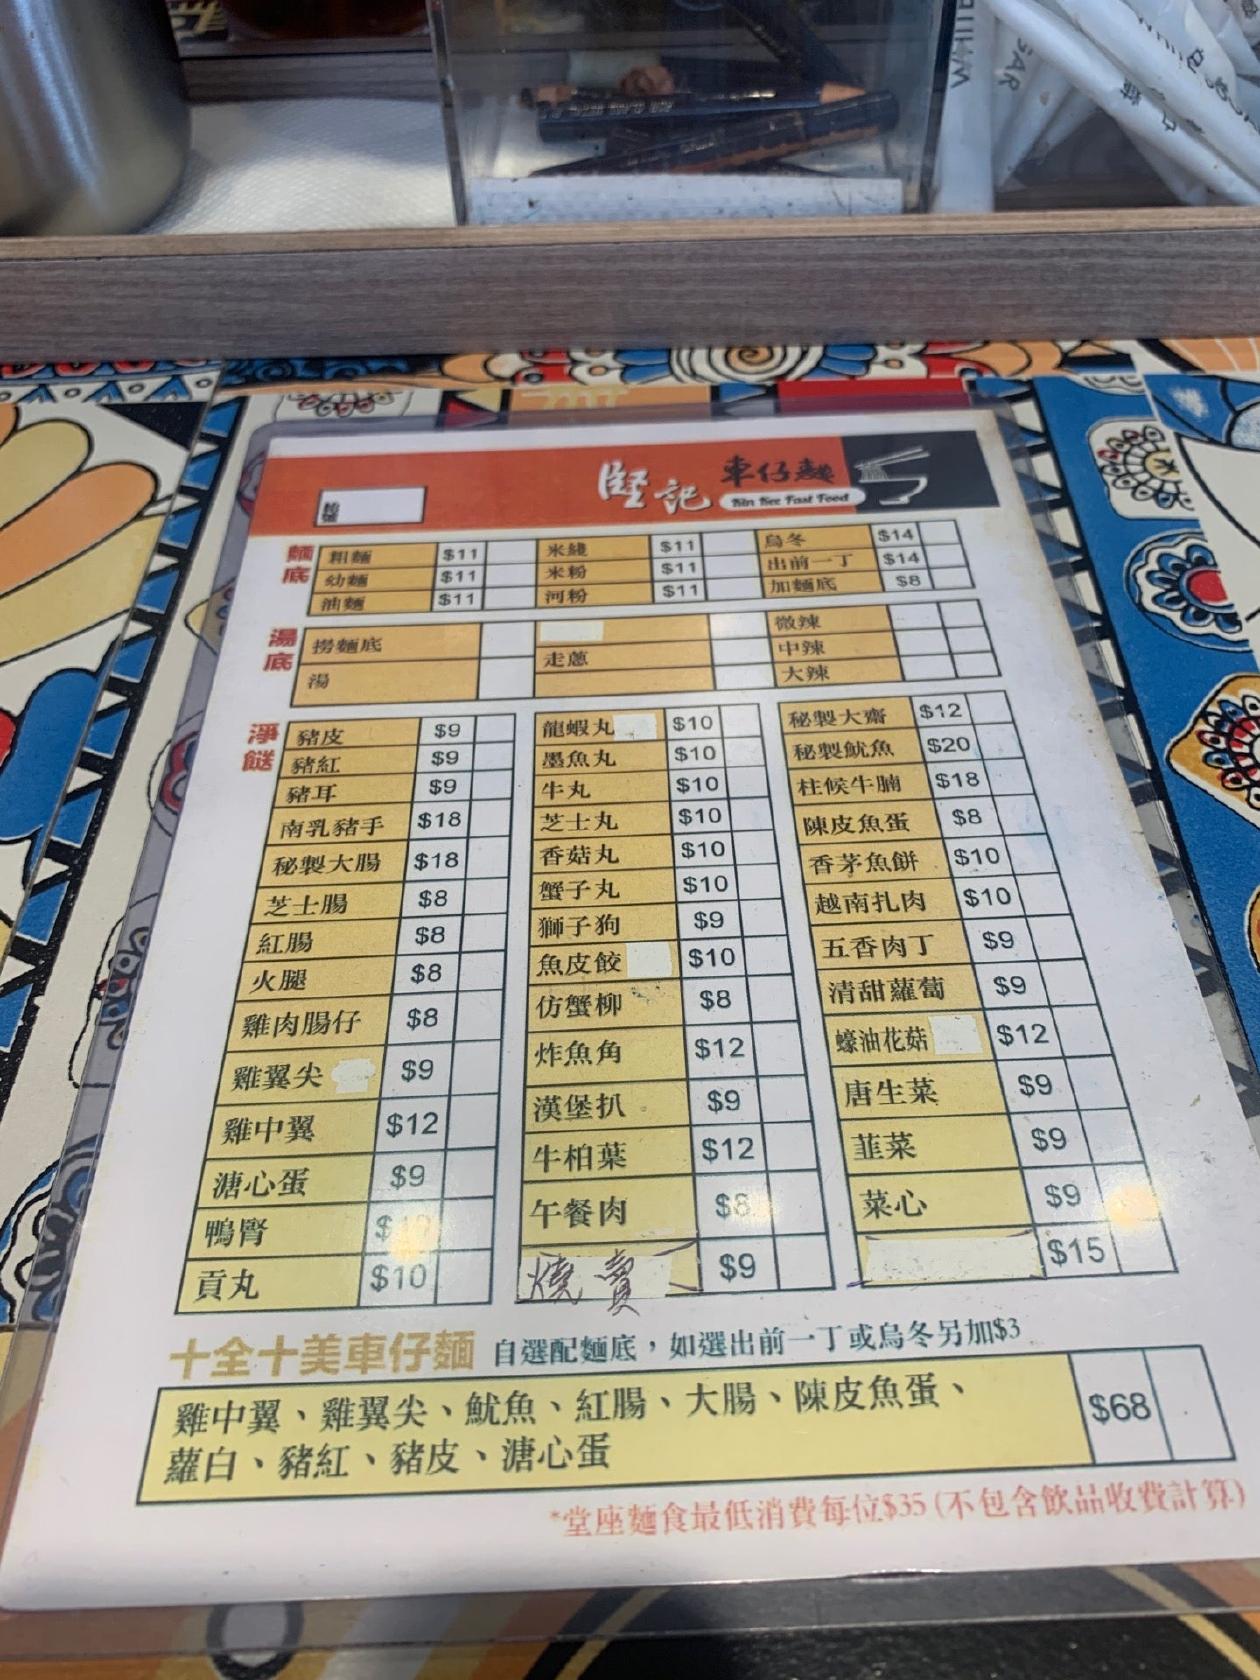 堅記
車仔麵
Kin Kee Fast Food
枱號
麵底
粗麵 $11 米綫 $11 烏冬 $14
幼麵 $11 米粉 $11 出前一丁 $14
油麵 $11 河粉 $11 加麵底 $8
湯底
撈麵底 微辣
走蔥 中辣
湯 大辣
淨餸
豬皮 $9 龍蝦丸 $10 秘製大齋 $12
豬紅 $9 墨魚丸 $10 秘製魷魚 $20
豬耳 $9 牛丸 $10 柱候牛腩 $18
南乳豬手 $18 芝士丸 $10 陳皮魚蛋 $8
秘製大腸 $18 香菇丸 $10 香茅魚餅 $10
芝士腸 $8 蟹子丸 $10 越南扎肉 $10
紅腸 $8 獅子狗 $9 五香肉丁 $9
火腿 $8 魚皮餃 $10 清甜蘿蔔 $9
雞肉腸仔 $8 仿蟹柳 $8 蠔油花菇 $12
雞翼尖 $9 炸魚角 $12 唐生菜 $9
雞中翼 $12 漢堡扒 $9 韮菜 $9
溏心蛋 $9 牛柏葉 $12 菜心 $9
鴨腎 午餐肉 $8 $15
貢丸 $10 燒賣 $9
十全十美車仔麵 自選配麵底，如選出前一丁或烏冬另加$3
雞中翼、雞翼尖、魷魚、紅腸、大腸、陳皮魚蛋、 $68
蘿白、豬紅、豬皮、溏心蛋
*堂座麵食最低消費每位$35 (不包含飲品收費計算)